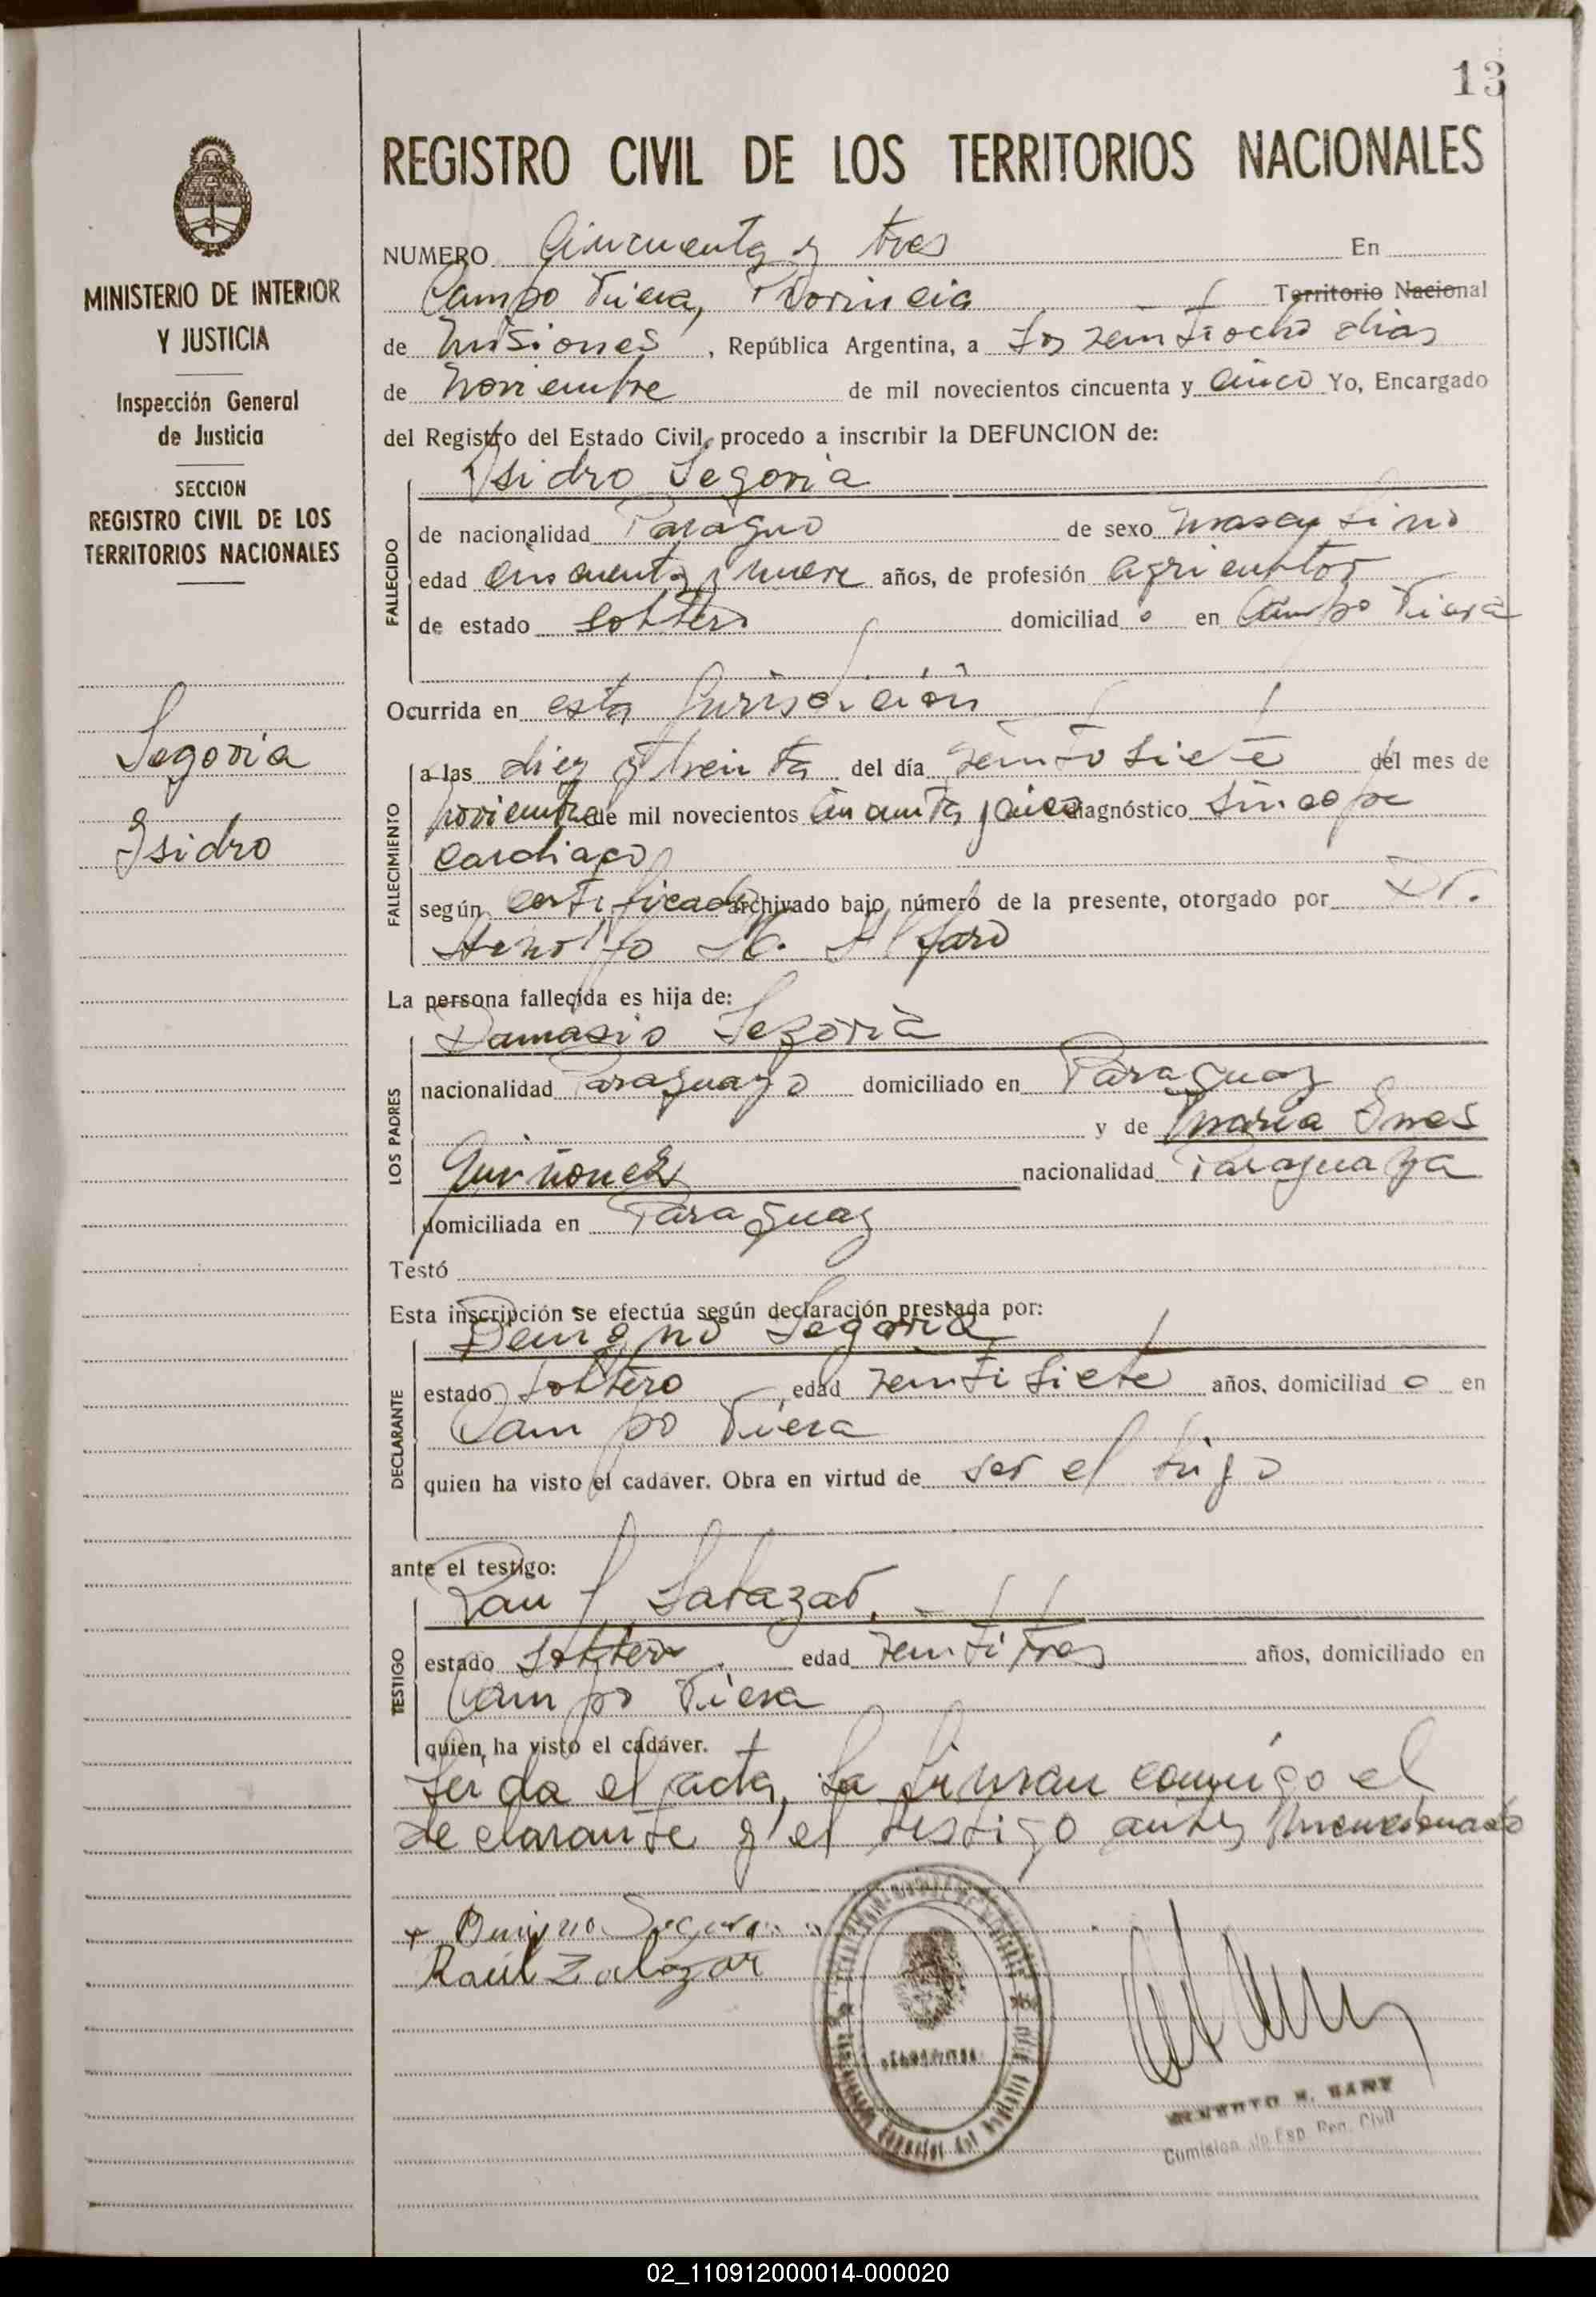 13
REGISTRO CIVIL DE LOS TERRITORIOS NACIONALES
MINISTERIO DE INTERIOR
Y JUSTICIA
Inspección General
de Justicia
SECCION
REGISTRO CIVIL DE LOS
TERRITORIOS NACIONALES
Segovia
Isidro
NUMERO Cincuenta y tres En
Campo Viera, Provincia Territorio Nacional
de Misiones, República Argentina, a los veintiocho dias
de Noviembre de mil novecientos cincuenta y cinco Yo, Encargado
del Registro del Estado Civil, procedo a inscribir la DEFUNCION de:
Isidro Segovia
FALLECIDO
de nacionalidad Paraguo de sexo masculino
edad cincuenta y nueve años, de profesión agricultor
de estado soltero domiciliad o en Campo Viera
Ocurrida en esta
FALLECIMIENTO
a las diez y treinta del día del mes de
noviembre de mil novecientos cincuenta y cinco diagnóstico Sincope
Cardiaco
según certificado archivado bajo número de la presente, otorgado por Dr.
Alfaro
La persona fallecida es hija de:
Damasio Segovia
LOS PADRES
nacionalidad Paraguayo domiciliado en Paraguay
y de Maria
Quiñonez nacionalidad Paraguaya
domiciliada en Paraguay
Testó
Esta inscripción se efectúa según declaración prestada por:
Benigno Segovia
DECLARANTE
estado soltero edad veintisiete años, domiciliad o en
Campo Viera
quien ha visto el cadáver. Obra en virtud de ser el hijo
ante el testigo:
Raul Salazar.
TESTIGO
estado soltero edad veintitres años, domiciliado en
Campo Viera
quien ha visto el cadáver.
Leida el acta, la firman conmigo el
declarante y el testigo antes mencionado
Benigno Segovia
Raúl Zalazar
Comision de Esp. Reg. Civil
02_110912000014-000020